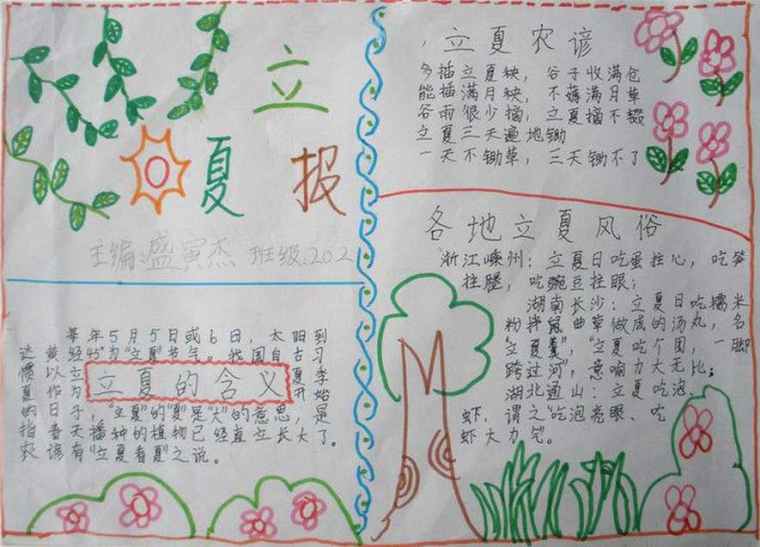 立
夏 报
主编:盛寅杰 班级:202
每年5月5日或6日，太阳到
达黄经45°为"立夏"节气。我国自古习
惯以立 夏季
立夏的含义
夏作为 开始
的日子，"立夏"的"夏"是"大"的意思，是
指春天播种的植物已经直立长大了。
农谚有"立夏看夏"之说。
立夏农谚
多插立夏秧，谷子收满仓
能插满月秧，不薅满月草
谷雨很少摘，立夏摘不辍
立夏三天遍地锄
一天不锄草，三天锄不了
各地立夏风俗
浙江嵊州：立夏日吃蛋拄心，吃笋
拄腿，吃豌豆拄眼；
湖南长沙：立夏日吃糯米
粉拌鼠曲草做成的汤丸，名
"立夏羹"，"立夏吃个团，一脚
跨过河，意响力大无比；
湖北通山：立夏吃泡、
虾，谓之"吃泡亮眼 吃
虾大力气。